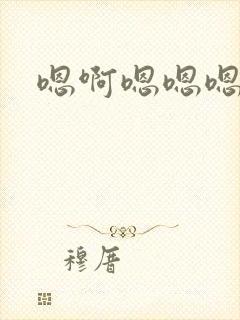 嗯啊嗯嗯嗯
穆厝